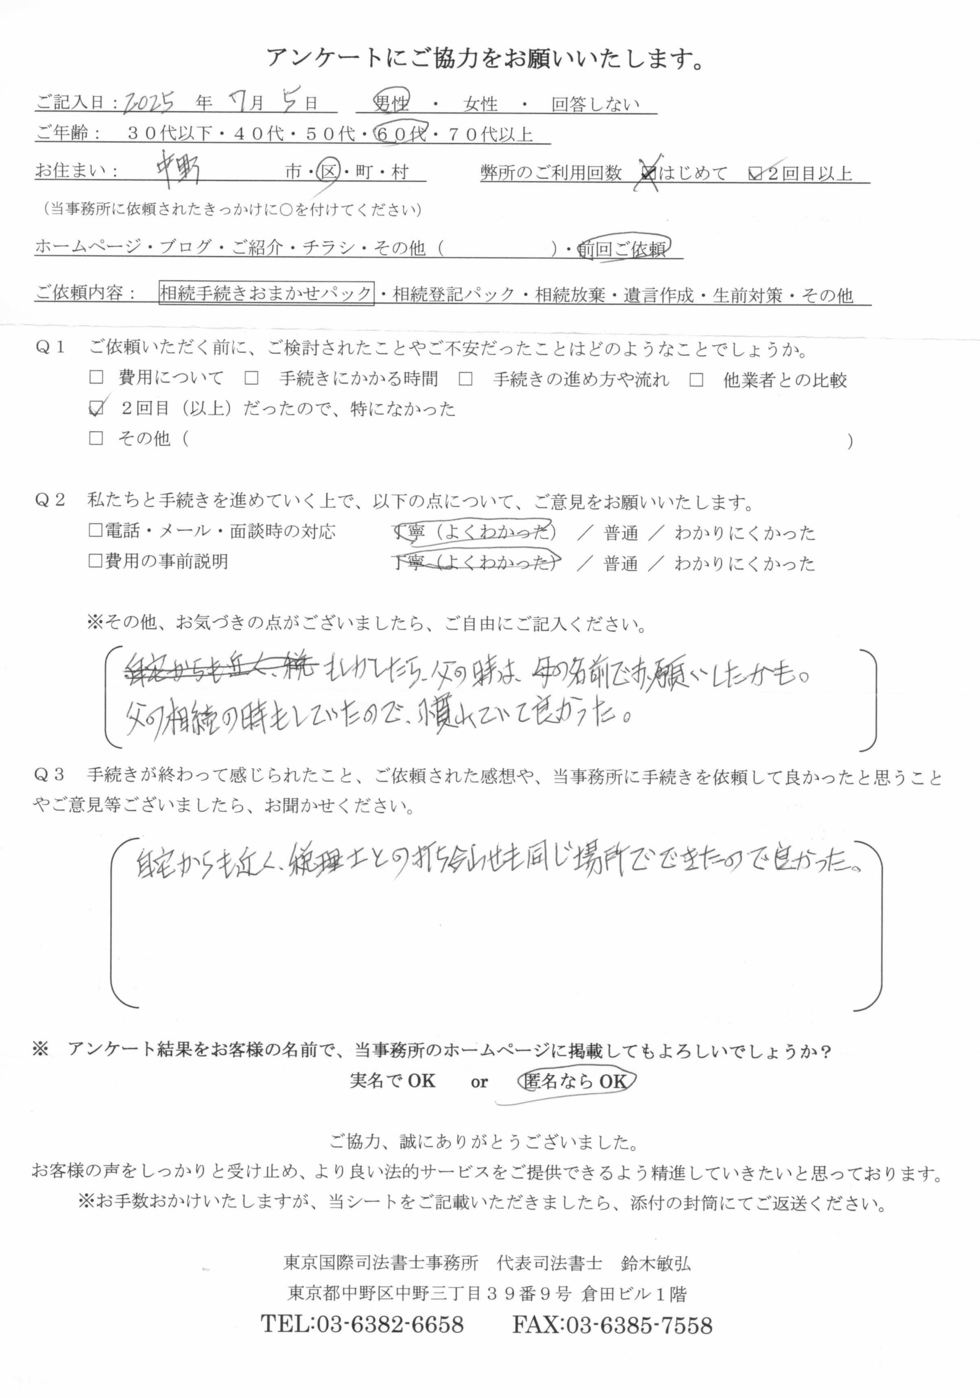 アンケートにご協力をお願いいたします。
ご記入日：2025 年 7月 5日　男性 ・ 女性 ・ 回答しない
ご年齢： ３０代以下・４０代・５０代・６０代・７０代以上
お住まい： 中野 市・区・町・村　弊所のご利用回数 ☑はじめて ☑２回目以上
（当事務所に依頼されたきっかけに○を付けてください）
ホームページ・ブログ・ご紹介・チラシ・その他（　　　）・前回ご依頼
ご依頼内容： 相続手続きおまかせパック・相続登記パック・相続放棄・遺言作成・生前対策・その他
Ｑ１ ご依頼いただく前に、ご検討されたことやご不安だったことはどのようなことでしょうか。
□ 費用について □ 手続きにかかる時間 □ 手続きの進め方や流れ □ 他業者との比較
☑ ２回目（以上）だったので、特になかった
□ その他（　　　）
Ｑ２ 私たちと手続きを進めていく上で、以下の点について、ご意見をお願いいたします。
□電話・メール・面談時の対応　丁寧（よくわかった） ／ 普通 ／ わかりにくかった
□費用の事前説明　丁寧（よくわかった） ／ 普通 ／ わかりにくかった
※その他、お気づきの点がございましたら、ご自由にご記入ください。
自宅からも近く、税 もしかしたら、父の時は、母の名前でお願いしたかも。
父の相続の時もしていたので、慣れていて良かった。
Ｑ３ 手続きが終わって感じられたこと、ご依頼された感想や、当事務所に手続きを依頼して良かったと思うこと
やご意見等ございましたら、お聞かせください。
自宅からも近く、税理士との打ち合わせも同じ場所でできたので良かった。
※ アンケート結果をお客様の名前で、当事務所のホームページに掲載してもよろしいでしょうか？
実名でOK or 匿名ならOK
ご協力、誠にありがとうございました。
お客様の声をしっかりと受け止め、より良い法的サービスをご提供できるよう精進していきたいと思っております。
※お手数おかけいたしますが、当シートをご記載いただきましたら、添付の封筒にてご返送ください。
東京国際司法書士事務所 代表司法書士 鈴木敏弘
東京都中野区中野三丁目３９番９号 倉田ビル１階
TEL:03-6382-6658 FAX:03-6385-7558